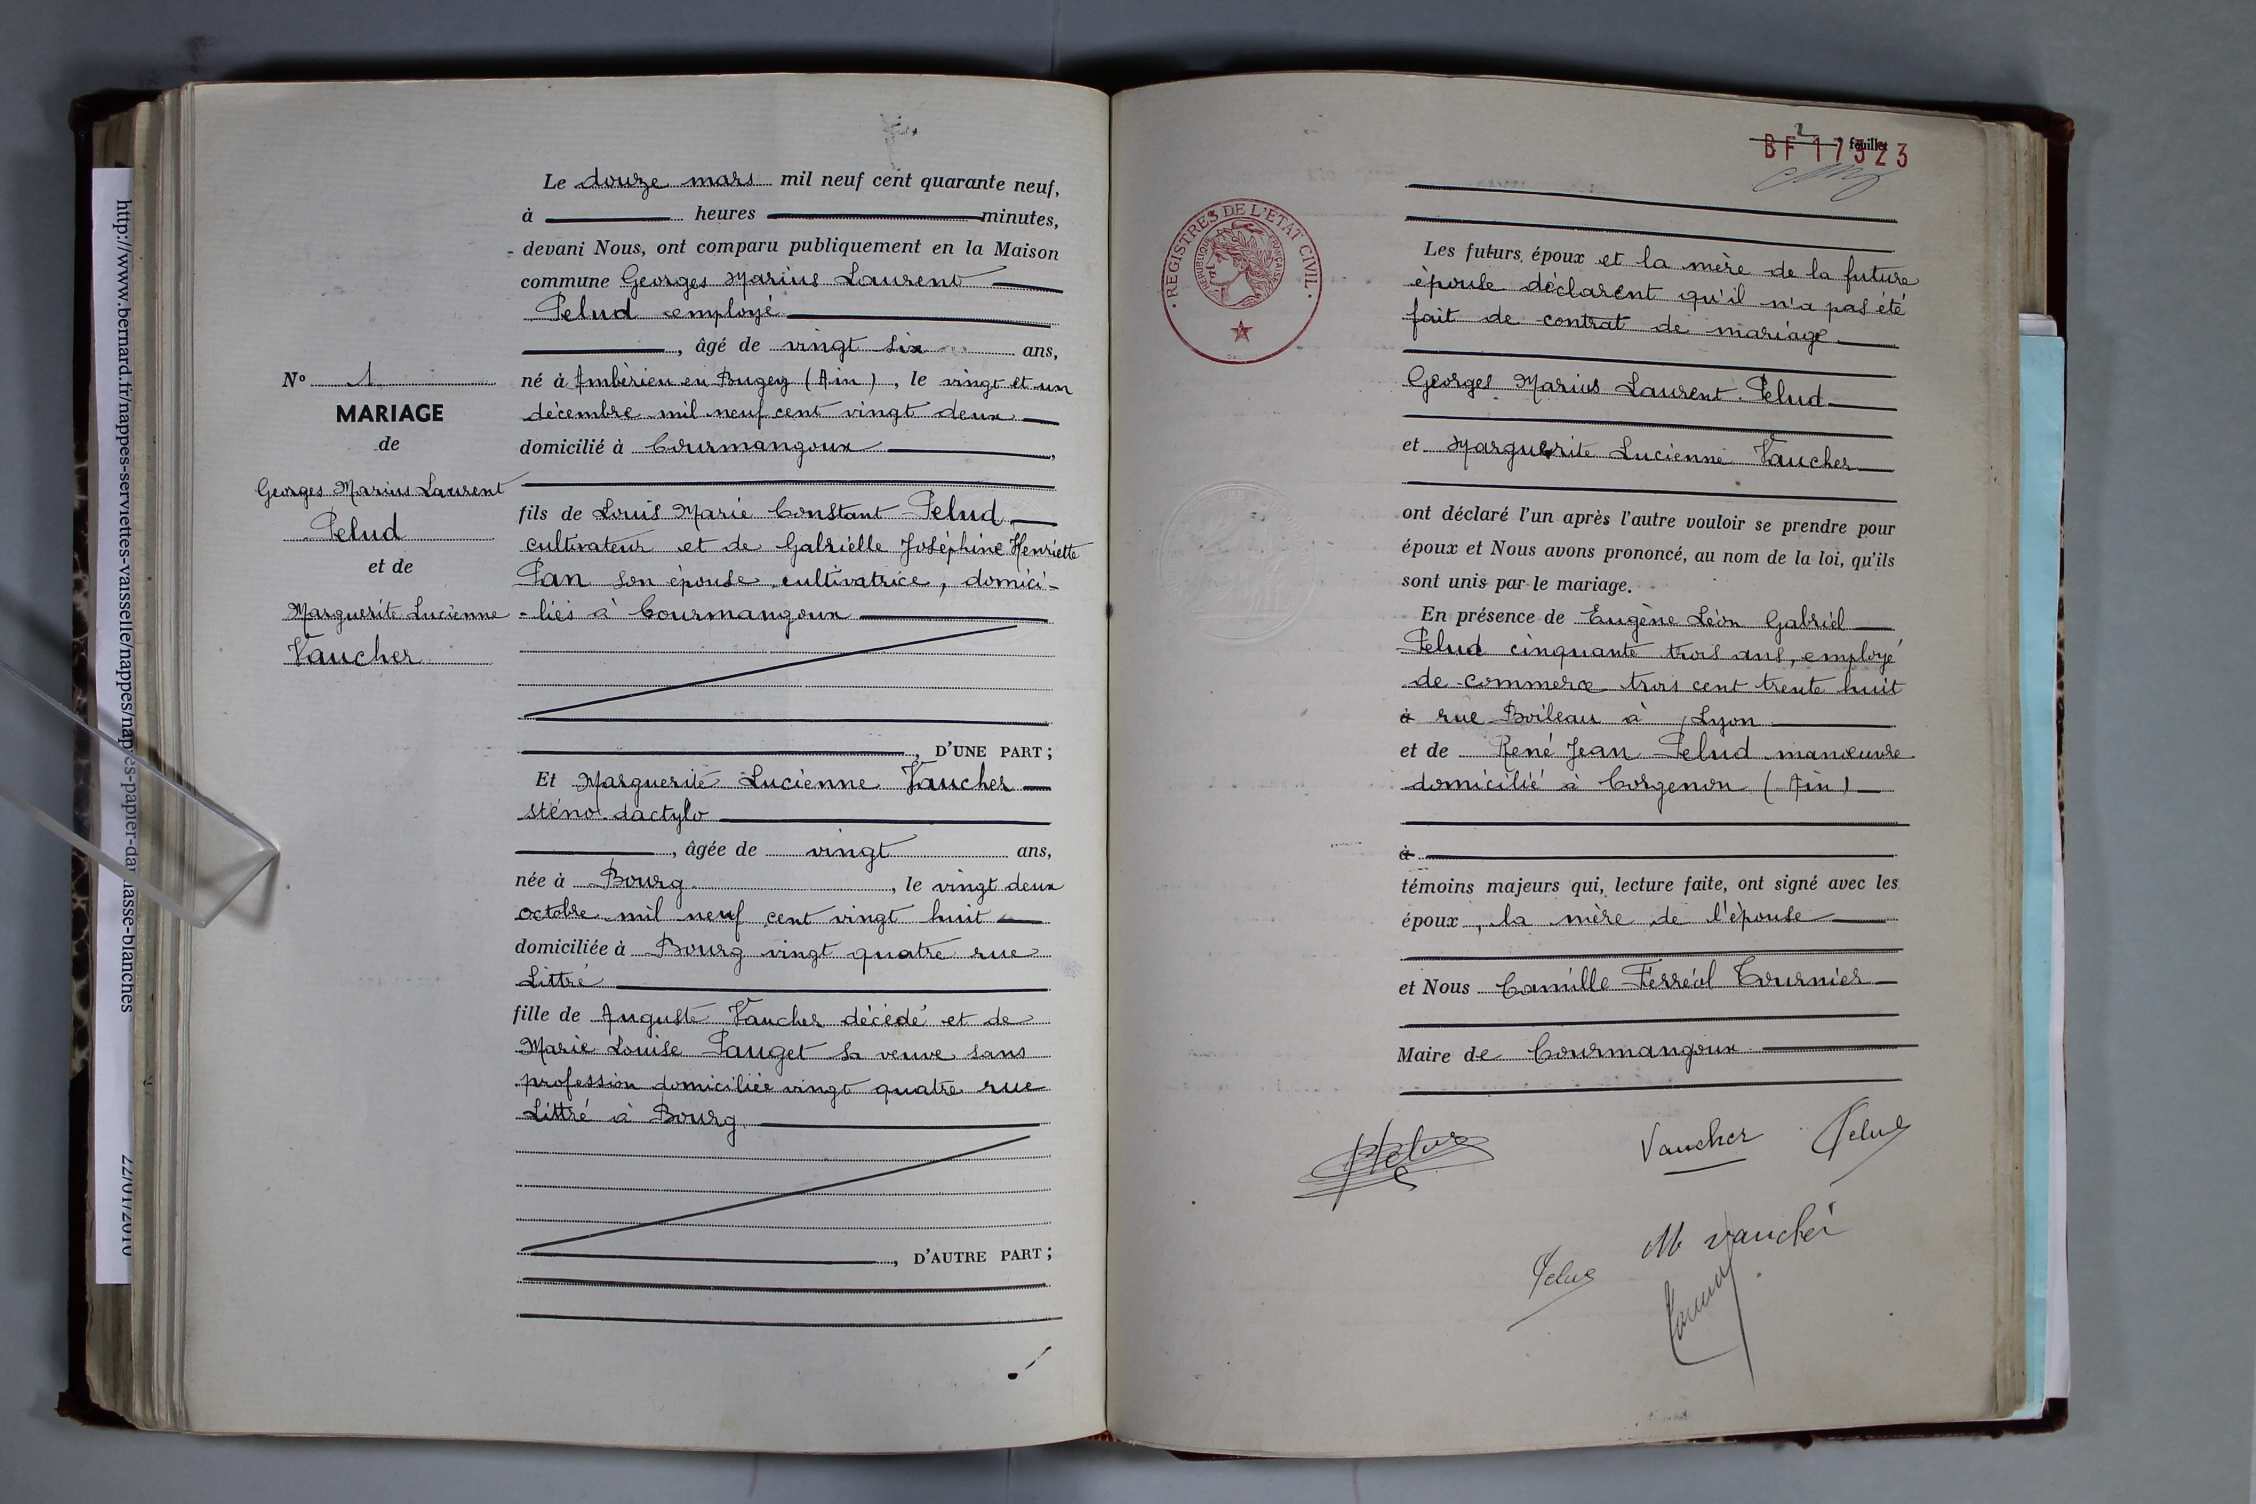 http://www.bernard.fr/nappes-serviettes-vaisselle/nappes/nappes-papier-damasse-blanches
22/01/2010
Le douze mars mil neuf cent quarante neuf,
à heures minutes,
devant Nous, ont comparu publiquement en la Maison
commune Georges Marius Laurent
Pelud employé
, âgé de vingt six ans,
né à Ambérieu en Bugey (Ain), le vingt et un
décembre mil neuf cent vingt deux
domicilié à Courmangoux,
fils de Louis Marie Constant Pelud
cultivateur et de Gabrielle Joséphine Henriette
Pan son épouse cultivatrice, domici-
-liés à Courmangoux
, D'UNE PART ;
Et Marguerite Lucienne Vaucher
sténo dactylo
, âgée de vingt ans,
née à Bourg, le vingt deux
octobre mil neuf cent vingt huit
domiciliée à Bourg vingt quatre rue
Littré
fille de Auguste Vaucher décédé et de
Marie Louise Pauget sa veuve sans
profession domiciliée vingt quatre rue
Littré à Bourg
, D'AUTRE PART ;
N° 1
MARIAGE
de
Georges Marius Laurent
Pelud
et de
Marguerite Lucienne
Vaucher
2 feuillet
BF 17323
REGISTRES DE L'ETAT CIVIL
REPUBLIQUE FRANÇAISE
Les futurs époux et la mère de la future
épouse déclarent qu'il n'a pas été
fait de contrat de mariage
Georges Marius Laurent Pelud
et Marguerite Lucienne Vaucher
ont déclaré l'un après l'autre vouloir se prendre pour
époux et Nous avons prononcé, au nom de la loi, qu'ils
sont unis par le mariage.
En présence de Eugène Léon Gabriel
Pelud cinquante trois ans, employé
de commerce trois cent trente huit
à rue Boileau à Lyon
et de René Jean Pelud manœuvre
domicilié à Corgenon (Ain)
à
témoins majeurs qui, lecture faite, ont signé avec les
époux, la mère de l'épouse
et Nous Camille Ferréol Tournier
Maire de Courmangoux
Pelud
Vaucher
Pelud
M Vaucher
Pelud